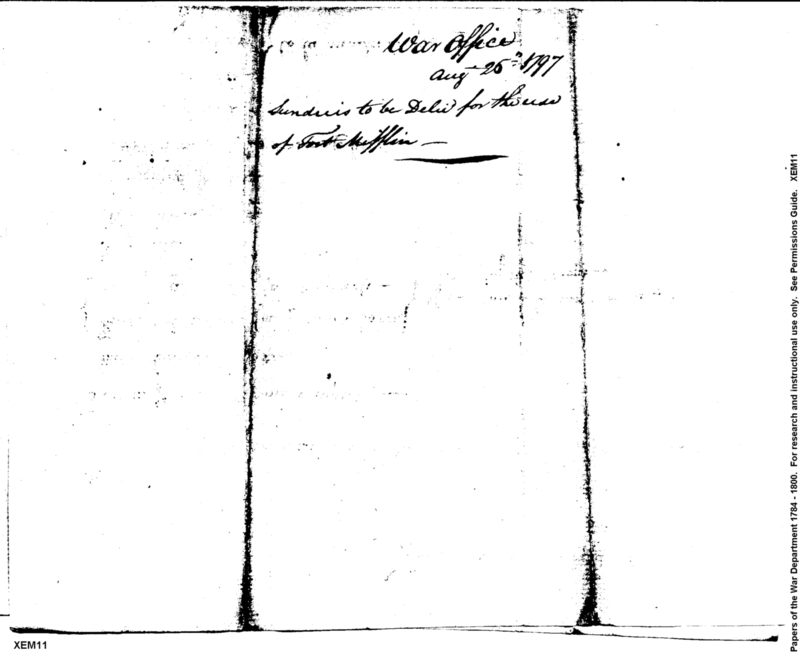 War Office
Aug 25th 1797
Sundries to be Deliv for the use
of Fort Mifflin —
XEM11
Papers of the War Department 1784 - 1800. For research and instructional use only. See Permissions Guide. XEM11